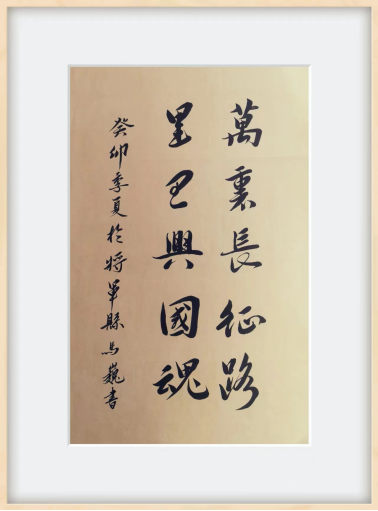 萬裏長征路
興國魂
癸卯季夏於將軍縣馬巍書